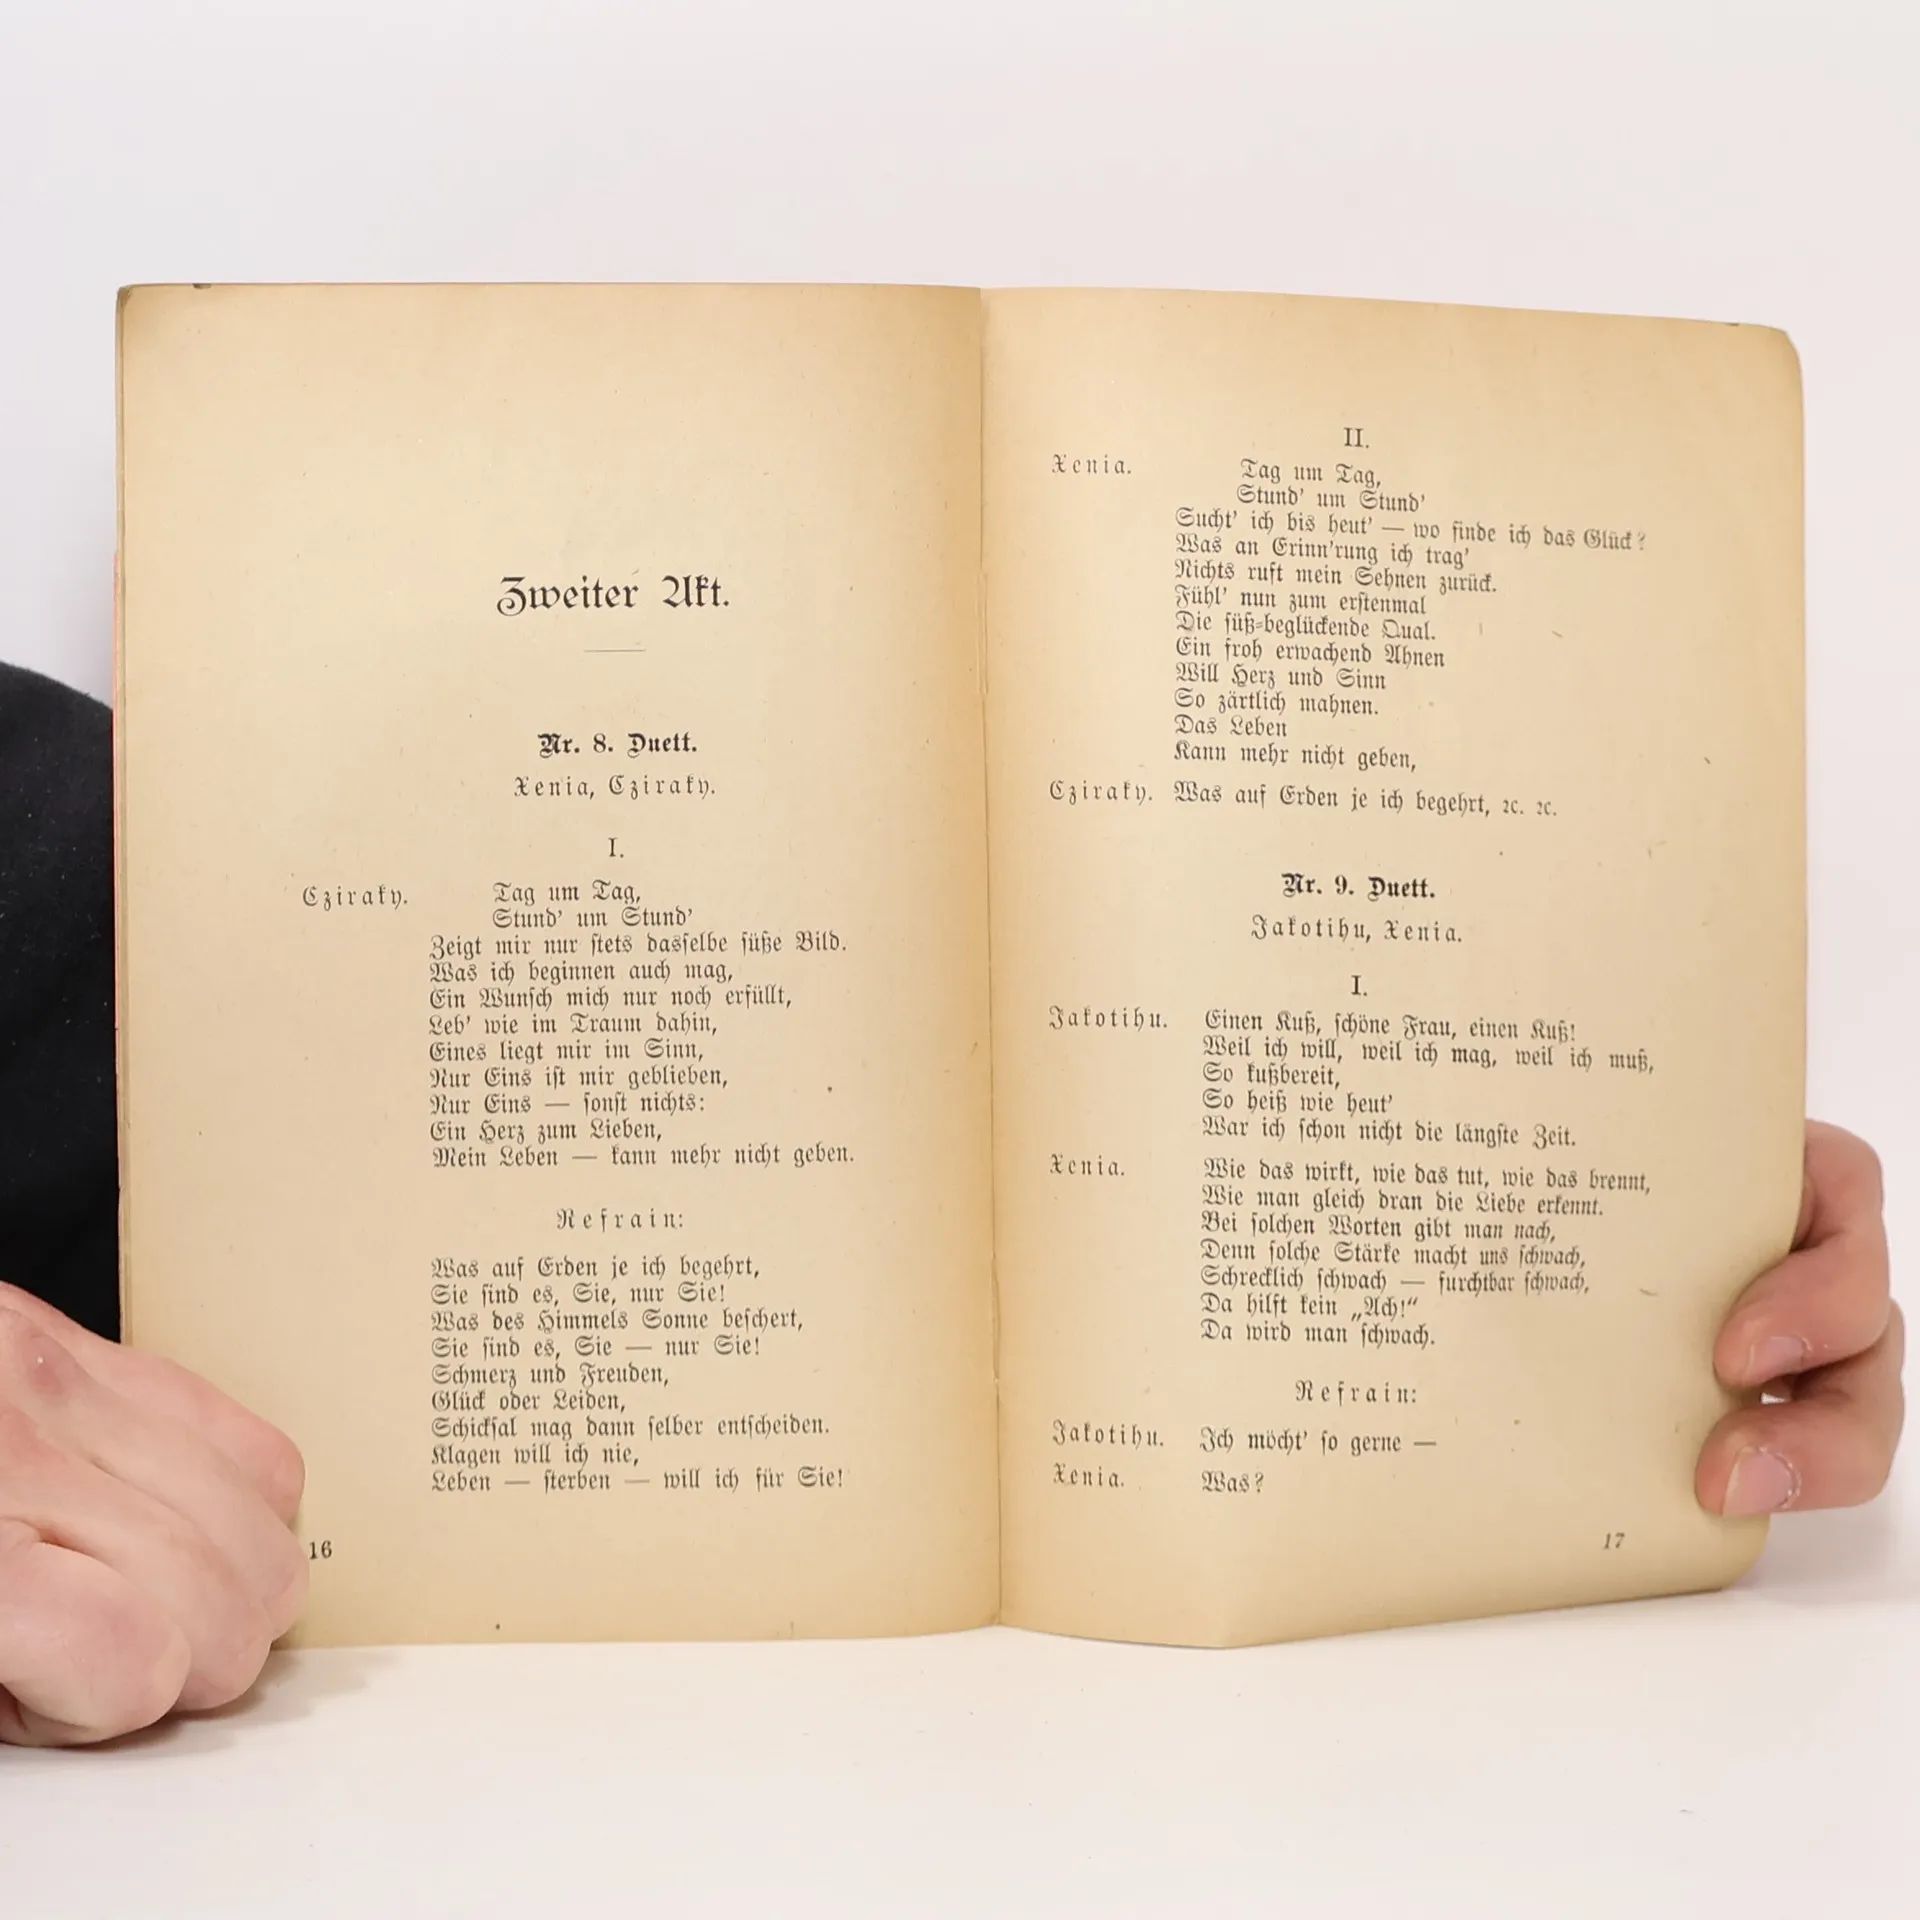 Zweiter Akt.
Nr. 8. Duett.
Xenia, Cziraky.
I.
Cziraky. Tag um Tag,
Stund' um Stund'
Zeigt mir nur stets dasselbe süße Bild.
Was ich beginnen auch mag,
Ein Wunsch mich nur noch erfüllt,
Leb' wie im Traum dahin,
Eines liegt mir im Sinn,
Nur Eins ist mir geblieben,
Nur Eins — sonst nichts:
Ein Herz zum Lieben,
Mein Leben — kann mehr nicht geben.
Refrain:
Was auf Erden je ich begehrt,
Sie sind es, Sie, nur Sie!
Was des Himmels Sonne beschert,
Sie sind es, Sie — nur Sie!
Schmerz und Freuden,
Glück oder Leiden,
Schicksal mag dann selber entscheiden.
Klagen will ich nie,
Leben — sterben — will ich für Sie!
16
II.
Xenia. Tag um Tag,
Stund' um Stund'
Sucht' ich bis heut' — wo finde ich das Glück?
Was an Erinn'rung ich trag'
Nichts ruft mein Sehnen zurück.
Fühl' nun zum erstenmal
Die süß-beglückende Qual.
Ein froh erwachend Ahnen
Will Herz und Sinn
So zärtlich mahnen.
Das Leben
Kann mehr nicht geben,
Cziraky. Was auf Erden je ich begehrt, ꝛc. ꝛc.
Nr. 9. Duett.
Jakotihu, Xenia.
I.
Jakotihu. Einen Kuß, schöne Frau, einen Kuß!
Weil ich will, weil ich mag, weil ich muß,
So kußbereit,
So heiß wie heut'
War ich schon nicht die längste Zeit.
Xenia. Wie das wirkt, wie das tut, wie das brennt,
Wie man gleich dran die Liebe erkennt.
Bei solchen Worten gibt man nach,
Denn solche Stärke macht uns schwach,
Schrecklich schwach — furchtbar schwach,
Da hilft kein „Ach!“
Da wird man schwach.
Refrain:
Jakotihu. Ich möcht' so gerne —
Xenia. Was?
17